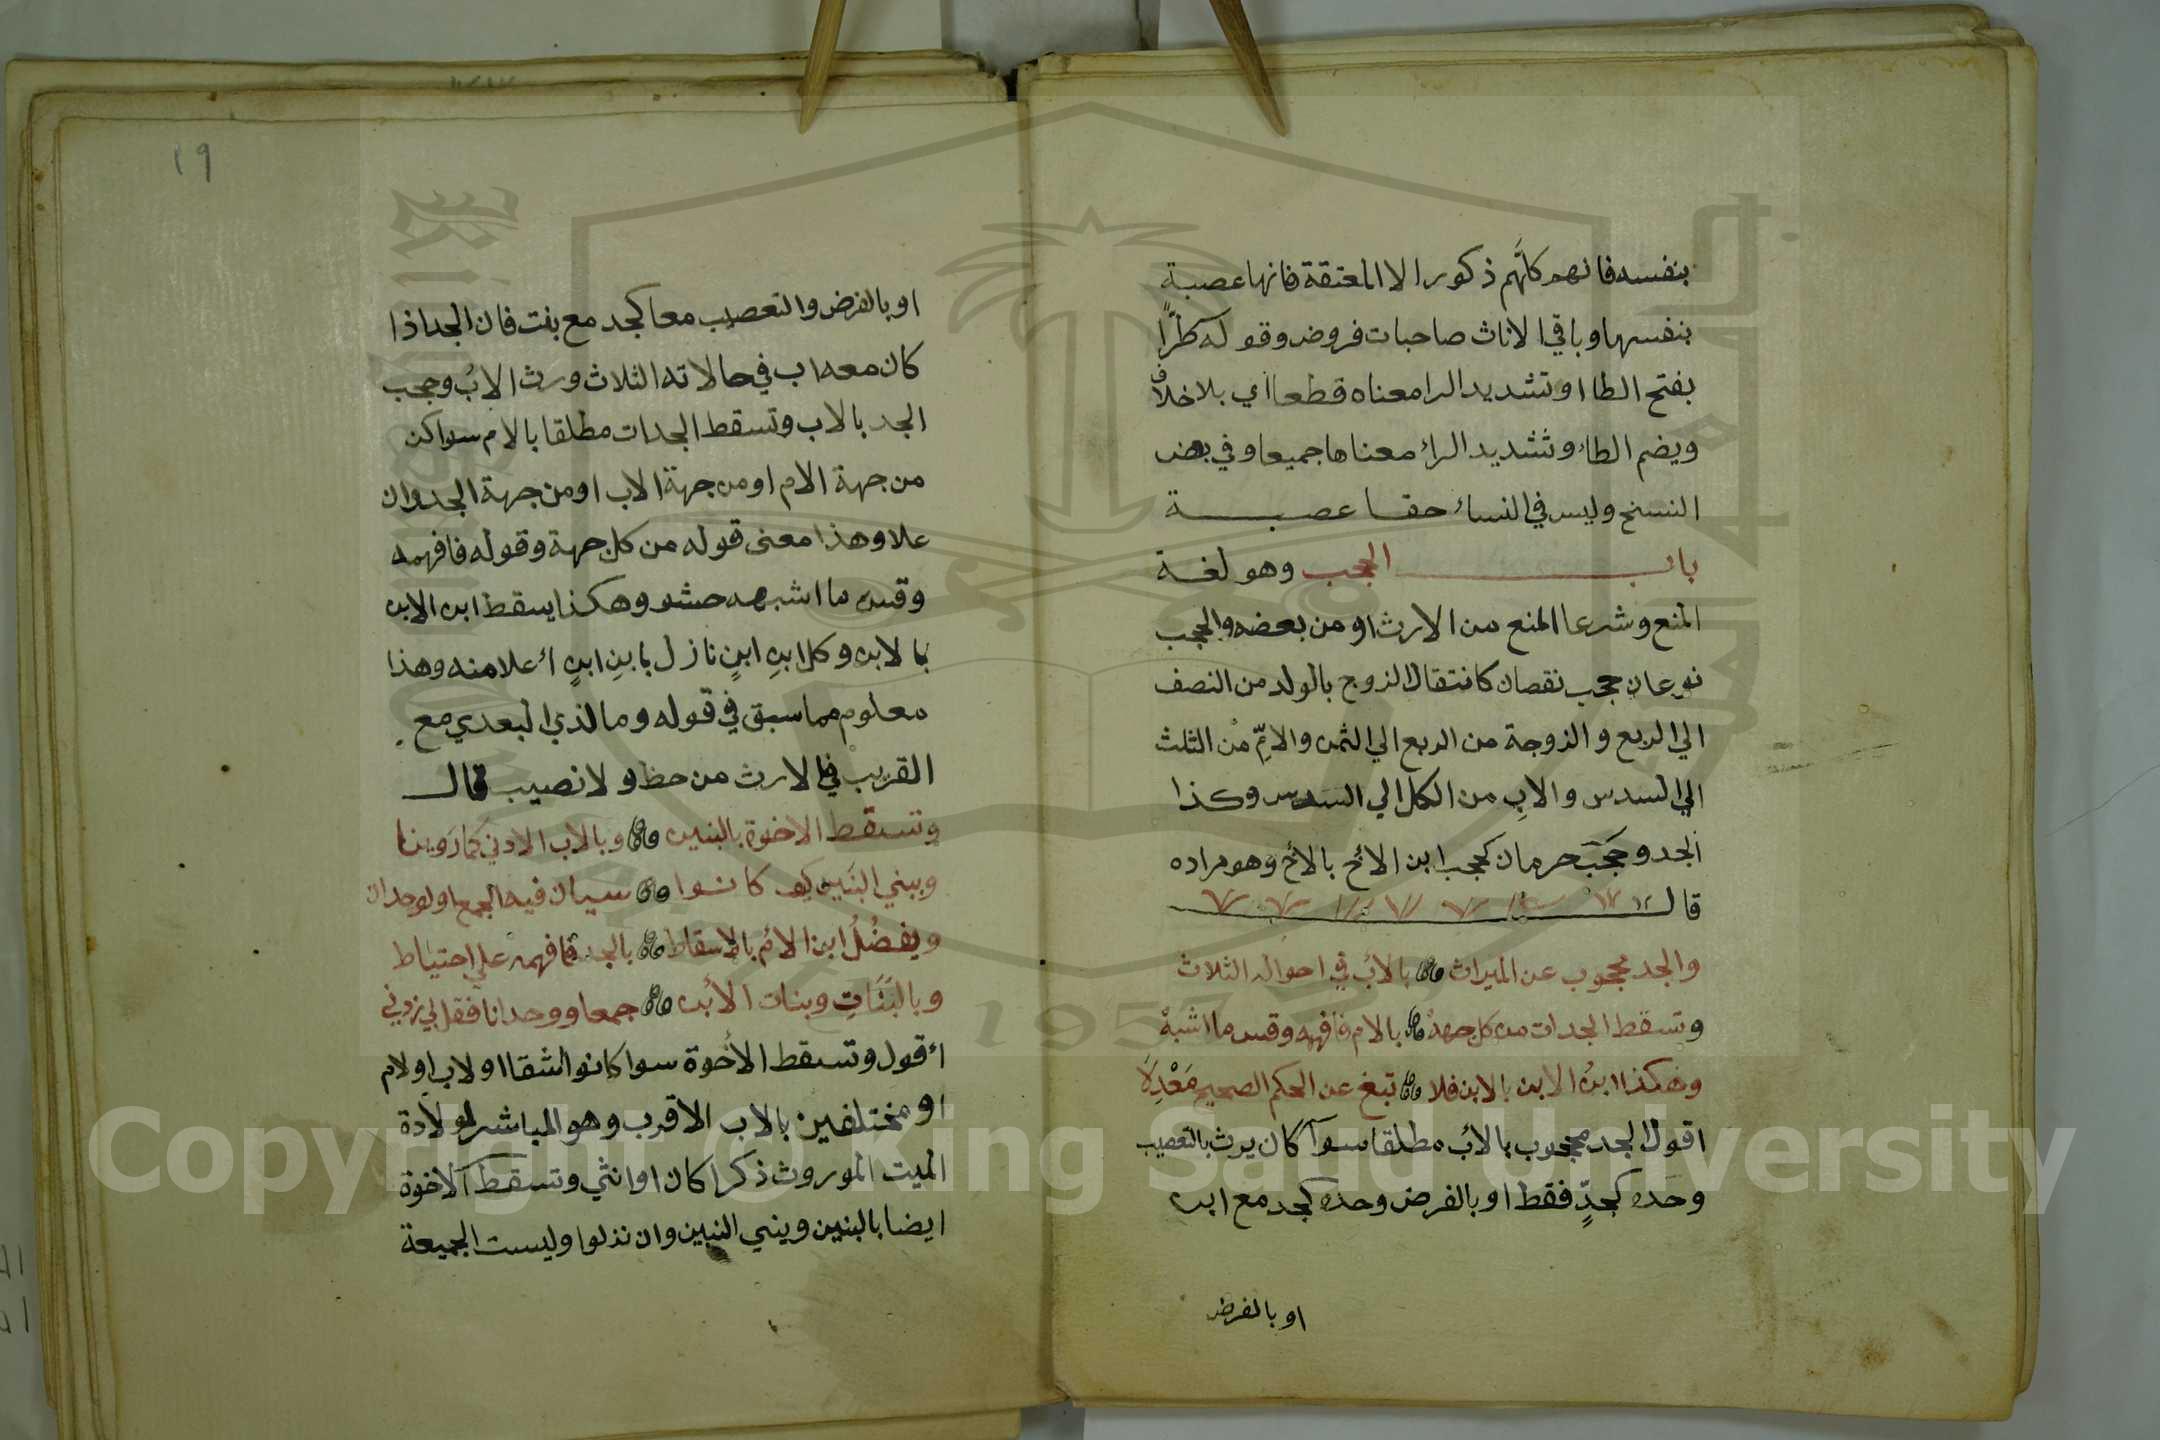 بنفسه فانهم كلَّهم ذكورا الا المعتقة فانها عصبة
بنفسها وباقي الاناث صاحبات فروض وقوله طرًّا
بفتح الطا وتشديد الرا معناه قطعا اي بلا خلاف
وبضم الطاء وتشديد الراء معناها جميعا وفي بعض
النسخ وليس في النساء حقا عصبة
باب الحجب وهو لغة
المنع وشرعا المنع من الارث او من بعضه والحجب
نوعان حجب نقصان كانتقال الزوج بالولد من النصف
الي الربع والزوجة من الربع الي الثمن والامِّ من الثلث
الي السدس والابِ من الكل الي السدس وكذا
الجد وحَجْبَ حرمان كحجب ابن الاخ بالاخ وهو مراده
قال
والجد محجوب عن الميراث بالابِ في احواله الثلاث
وتسقط الجدات من كل جهة بالام فافهمه وقس ما اشبهْ
وهكذا ابنُ الابن بالابن فلا تبغ عن الحكم الصحيح مَعْدِلَا
اقول الجد محجوب بالاب مطلقا سوآ كان يرث بالتعصيب
وحده كجدٍّ فقط او بالفرض وحده كجد مع ابن
او بالفرض
١٩
او بالفرض والتعصيب معا كجد مع بنت فان الجد اذا
كان معه اب في حالاته الثلاث ورث الابُ وحجب
الجد بالاب وتسقط الجدات مطلقا بالام سوا كن
من جهة الام او من جهة الاب او من جهة الجد وان
علا وهذا معنى قوله من كل جهة وقوله فافهمه
وقس ما اشبهه حشو وهكذا يسقط ابن الابن
بالابن وكل ابنِ ابنٍ نازل بابنِ ابنٍ اعلا منه وهذا
معلوم مما سبق في قوله وما لذي البعدي مع
القريب في الارث من حظ ولا نصيب قال
وتسقط الاخوة بالبنين وبالاب الادني كما رَوينا
وببني البَنين كيف كانوا سيان فيه الجمع والوحدان
ويفضُلُ ابن الام بالاسقاط بالجد فافهمه علي احتياط
وبالبَنَاتِ وبنات الابن جمعا ووحدانا فقل لي زدني
اقول وتسقط الاخوة سوا كانوا اشقا او لاب او لام
او مختلفين بالاب الاقرب وهو المباشر لولادة
الميت الموروث ذكرا كان او انثي وتسقط الاخوة
ايضا بالبنين وبني البنين وان نزلوا وليست الجميعة
Copyright © King Saud University
1957